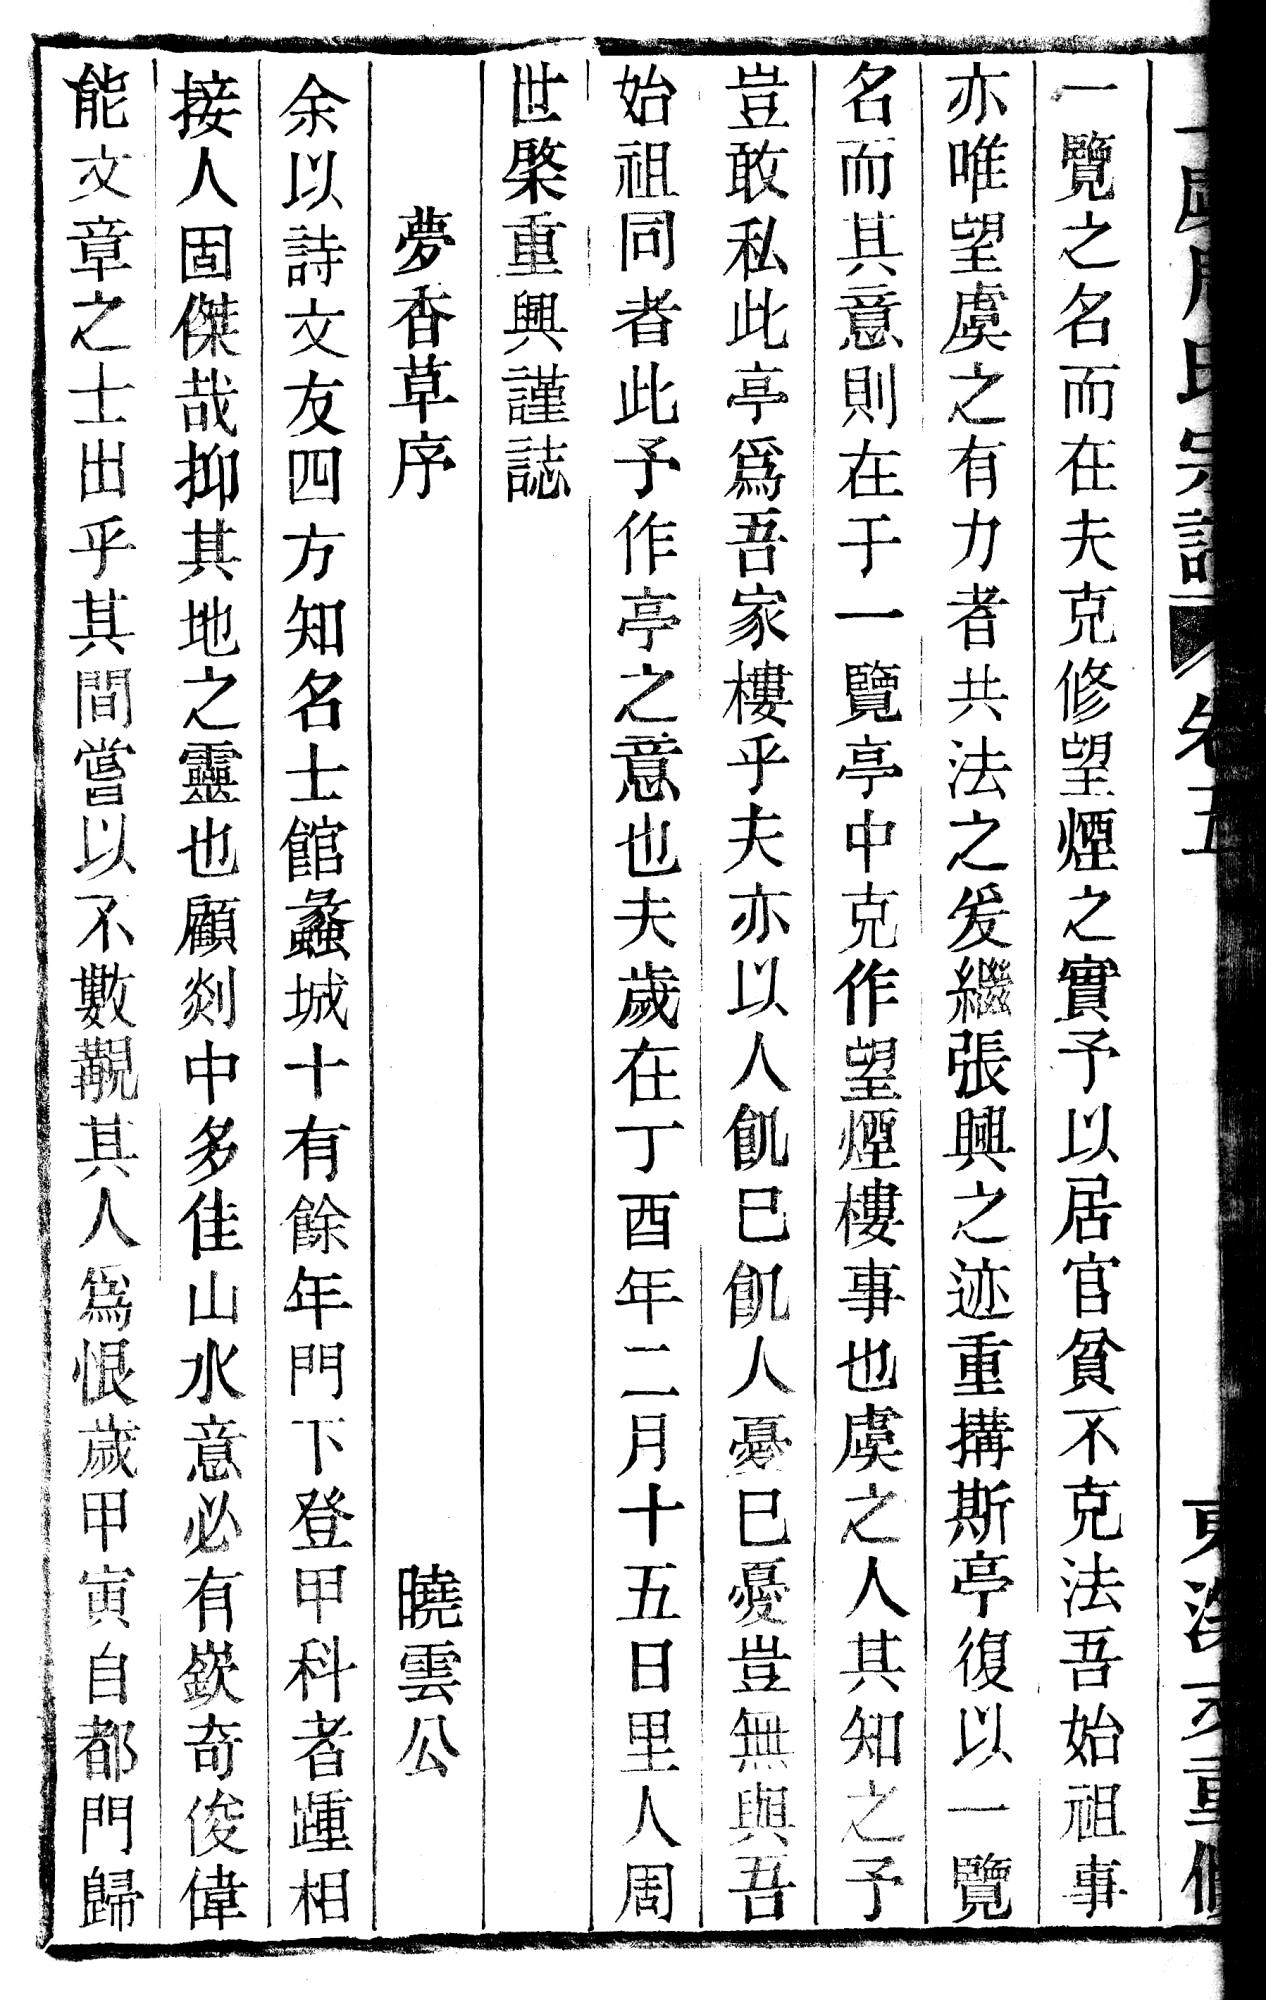 氏宗譜 卷五 重修
一覽之名而在夫克修望煙之實予以居官貧不克法吾始祖事
亦唯望虞之有力者共法之爰繼張興之迹重搆斯亭復以一覽
名而其意則在于一覽亭中克作望煙樓事也虞之人其知之予
豈敢私此亭爲吾家樓乎夫亦以人飢巳飢人憂巳憂豈無與吾
始祖同者此予作亭之意也夫歲在丁酉年二月十五日里人周
世棨重興謹誌
夢香草序 曉雲公
余以詩文友四方知名士館蠡城十有餘年門下登甲科者踵相
接人固傑哉抑其地之靈也顧剡中多佳山水意必有嶔奇俊偉
能文章之士出乎其間嘗以不數覯其人爲恨歲甲寅自都門歸